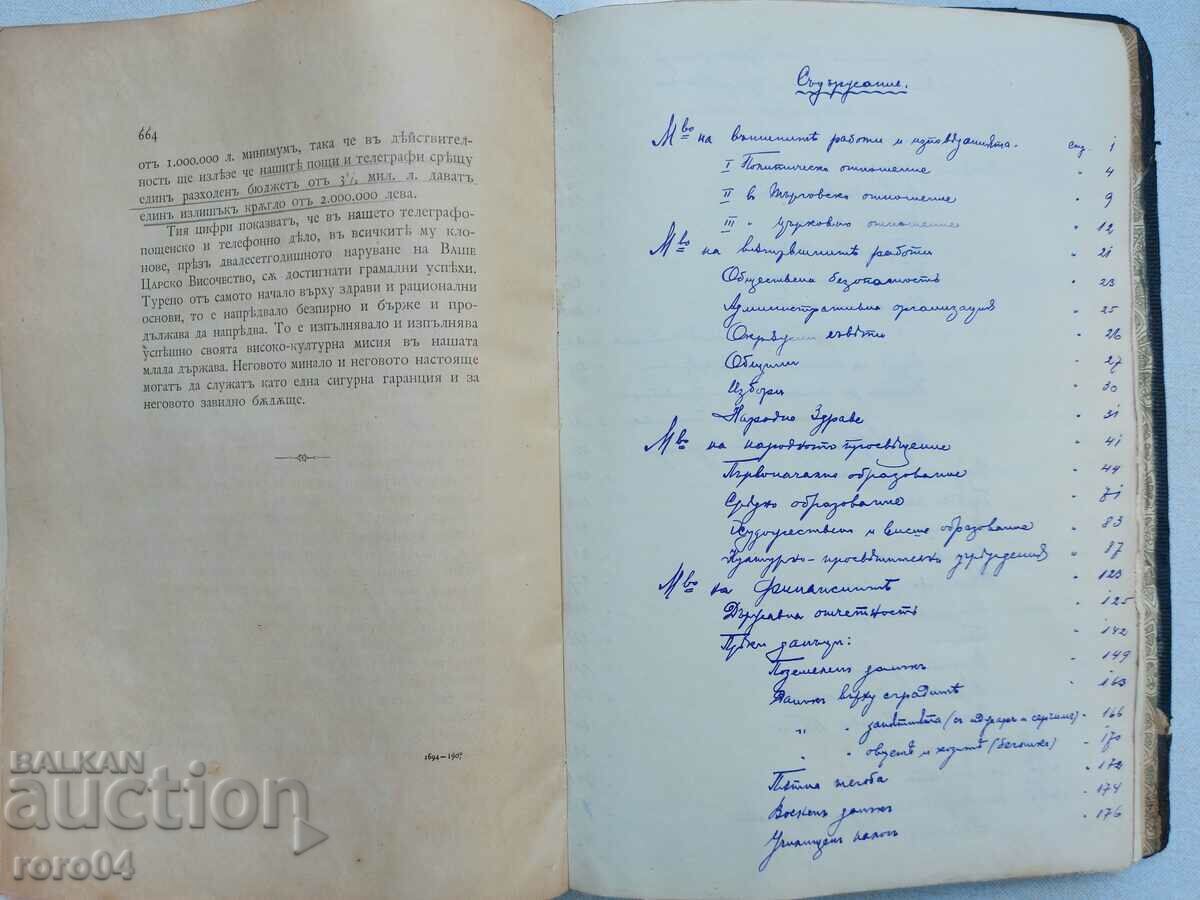 664
отъ 1.000.000 л. минимумъ, така че въ дѣйствител-
ность ще излѣзе че нашитѣ пощи и телеграфи срѣщу
единъ разходенъ бюджетъ отъ 3½ мил. л. даватъ
единъ излишъкъ крѫгло отъ 2.000.000 лева.
Тия цифри показватъ, че въ нашето телеграфо-
пощенско и телефонно дѣло, въ всичкитѣ му кло-
нове, прѣзъ двадесетгодишното царуване на Ваше
Царско Височество, сѫ достигнати грамадни успѣхи.
Турено отъ самото начало върху здрави и рационални
основи, то е напрѣдвало безпирно и бърже и про-
дължава да напрѣдва. То е изпълнявало и изпълнява
успѣшно своята високо-културна мисия въ нашата
млада държава. Неговото минало и неговото настояще
могатъ да служатъ като една сигурна гаранция и за
неговото завидно бѫдѫще.
1694—1907
Съдържание.
М-во на външнитѣ работи и исповѣданията. стр. 1
I Политическо отношение " 4
II в Търговско отношение " 9
III " Църковно отношение " 12
М-во на вѫтрѣшнитѣ работи " 21
Обществена безопасность " 23
Административна организация " 25
Окрѫжни съвѣти " 26
Общини " 27
Избори " 30
Народно Здраве " 31
М-во на народното просвѣщение " 41
Първоначално образование " 44
Срѣдно образование " 71
Художествено и висше образование " 83
Културно-просвѣтителни учрѣждения " 87
М-во на финансиитѣ " 123
Държавна отчетность " 125
Прѣки данъци: " 142
Поземеленъ данъкъ " 149
Данъкъ върху сградитѣ " 163
" " занятията " 166
" " овцетѣ и козитѣ (беглика) " 170
Пѫтна тегоба " 172
Военъ данъкъ " 174
Училищенъ налогъ " 176
BALKAN
auction
roro04